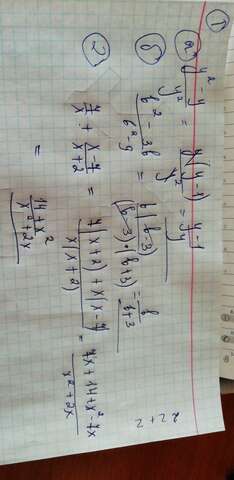 ①
а) (y² - y)/y² = y(y-1)/y² = (y-1)/y
б) (b² - 3b)/(b² - 9) = b(b-3)/((b-3)·(b+3)) = b/(b+3)
②
7/x + (x-7)/(x+2) = (7(x+2) + x(x-7))/(x(x+2)) = (7x + 14 + x² - 7x)/(x² + 2x)
= (14 + x²)/(x² + 2x)